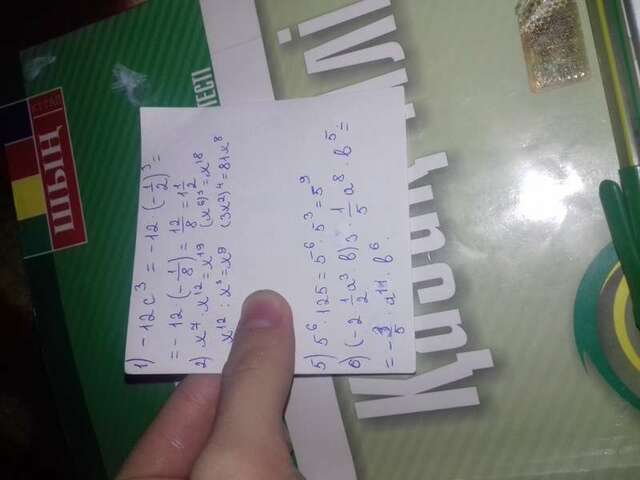 1) -12c³ = -12 (-1/2)³ =
= -12 (-1/8) = 12/8 = 1 1/2
2) x⁷ · x¹² = x¹⁹ (x⁶)³ = x¹⁸
x¹² : x³ = x⁹ (3x²)⁴ = 81x⁸
5) 5⁶ · 125 = 5⁶ · 5³ = 5⁹
6) (-2 1/2 a³ · b) 3 · 1/5 a⁸ · b⁵ =
· a¹¹ · b⁶ ·
ШЫҢ
КІТАП